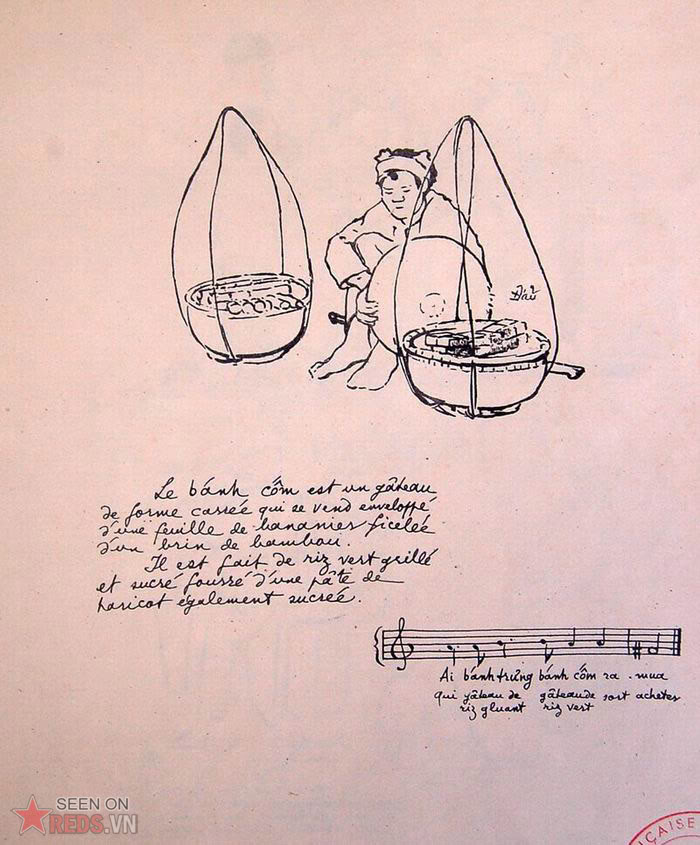 Đẩu
Le bánh cốm est un gâteau
de forme carrée qui se vend enveloppé
d'une feuille de bananier ficelée
d'un brin de bambou.
Il est fait de riz vert grillé
et sucré fourré d'une pâte de
haricot également sucrée.
Ai bánh trưng bánh cốm ra . mua
qui gâteau de gâteau de sort acheter
riz gluant riz vert
SEEN ON
REDS.VN
ÇAISE